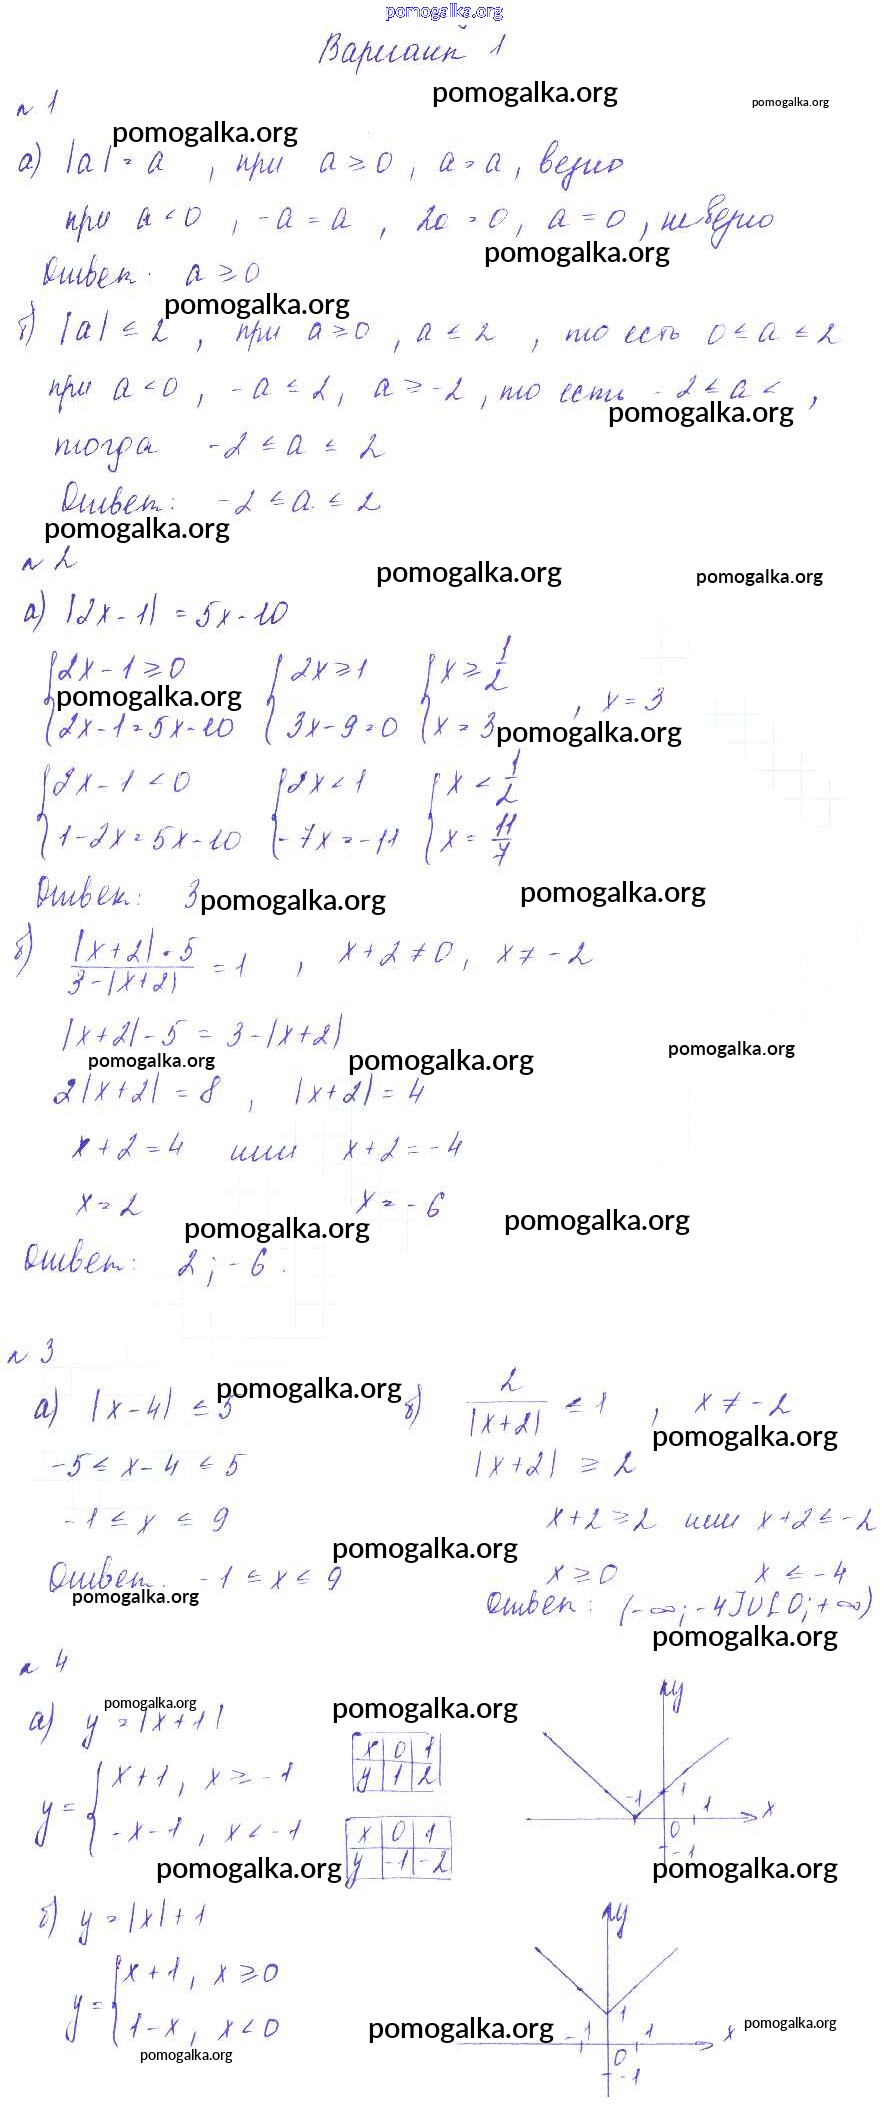 pomogalka.org
Вариант 1
№ 1
pomogalka.org pomogalka.org
pomogalka.org
а) |a| = a , при a ≥ 0 , a = a , верно
при a < 0 , -a = a , 2a = 0 , a = 0 , неверно
pomogalka.org
Ответ: a ≥ 0
pomogalka.org
б) |a| ≤ 2 , при a ≥ 0 , a ≤ 2 , то есть 0 ≤ a ≤ 2
при a < 0 , -a ≤ 2 , a ≥ -2 , то есть -2 ≤ a < ,
pomogalka.org
тогда -2 ≤ a ≤ 2
Ответ: -2 ≤ a ≤ 2
pomogalka.org
№ 2
pomogalka.org pomogalka.org
а) |2x - 1| = 5x - 10
{2x - 1 ≥ 0 {2x ≥ 1 {x ≥ 1/2
pomogalka.org
{2x - 1 = 5x - 10 {3x - 9 = 0 {x = 3 , x = 3
pomogalka.org
{2x - 1 < 0 {2x < 1 {x < 1/2
{1 - 2x = 5x - 10 {-7x = -11 {x = 11/7
Ответ: 3
pomogalka.org pomogalka.org
б) |x+2| - 5 / 3 - |x+2| = 1 , x + 2 ≠ 0 , x ≠ -2
|x+2| - 5 = 3 - |x+2|
pomogalka.org pomogalka.org pomogalka.org
2|x+2| = 8 , |x+2| = 4
x + 2 = 4 или x + 2 = -4
x = 2 x = -6
pomogalka.org pomogalka.org
Ответ: 2 ; -6 .
№ 3
pomogalka.org
а) |x - 4| ≤ 5 б) 2 / |x+2| ≤ 1 , x ≠ -2
pomogalka.org
-5 ≤ x - 4 ≤ 5 |x+2| ≥ 2
-1 ≤ x ≤ 9 x + 2 ≥ 2 или x + 2 ≤ -2
pomogalka.org
Ответ. -1 ≤ x ≤ 9 x ≥ 0 x ≤ -4
pomogalka.org
Ответ: (-∞; -4]U[0; +∞)
pomogalka.org
№ 4
pomogalka.org pomogalka.org
а) y = |x + 1|
y = {x + 1 , x ≥ -1
{-x - 1 , x < -1
x 0 1
y 1 2
x 0 1
y -1 -2
y
-1 1
0 1 x
-1
pomogalka.org pomogalka.org
б) y = |x| + 1
y = {x + 1 , x ≥ 0
{1 - x , x < 0
y
1
-1 1 x
0
-1
pomogalka.org pomogalka.org
pomogalka.org